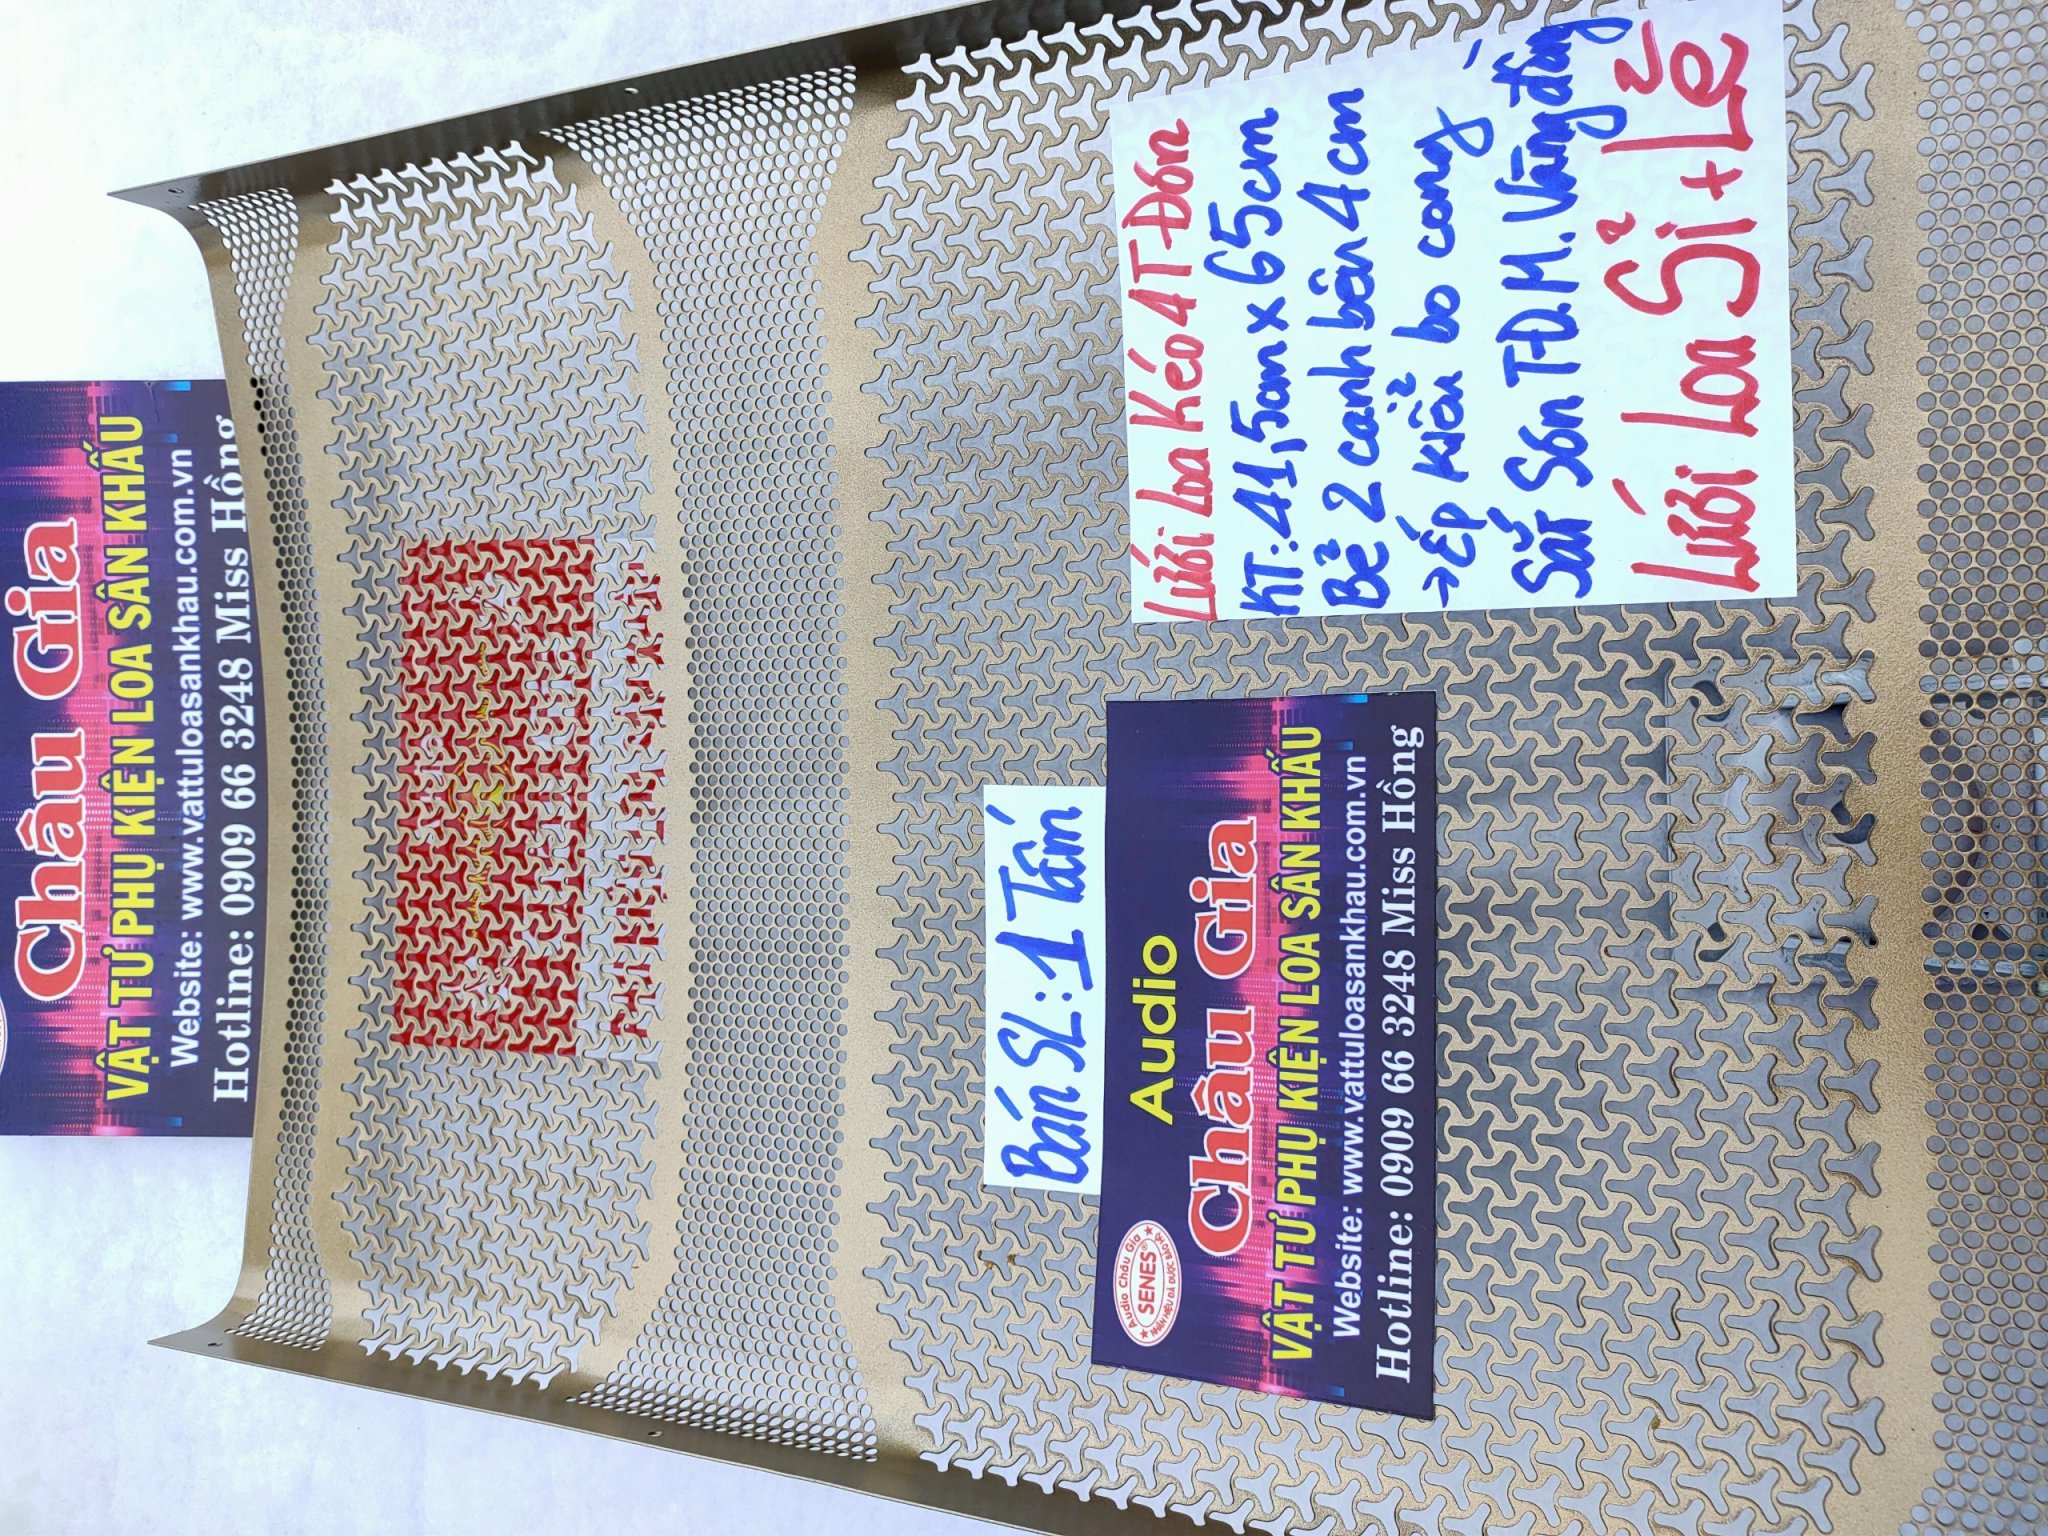 Châu Gia
VẬT TƯ PHỤ KIỆN LOA SÂN KHẤU
Website: www.vattuloasankhau.com.vn
Hotline: 0909 66 3248 Miss Hồng
Lưới Loa Kéo 4T Đơn
KT: 41,5cm x 65cm
Bẻ 2 cạnh bên 4cm
→ Ép kiểu bo cong
Sắt Sơn T.Đ.M. Vàng đồng
Lưới Loa Sỉ + Lẻ
Bán SL: 1 Tấm
Audio
Châu Gia
VẬT TƯ PHỤ KIỆN LOA SÂN KHẤU
Website: www.vattuloasankhau.com.vn
Hotline: 0909 66 3248 Miss Hồng
Audio Châu Gia
SENES®
NHÃN HIỆU ĐÃ ĐƯỢC BẢO HỘ